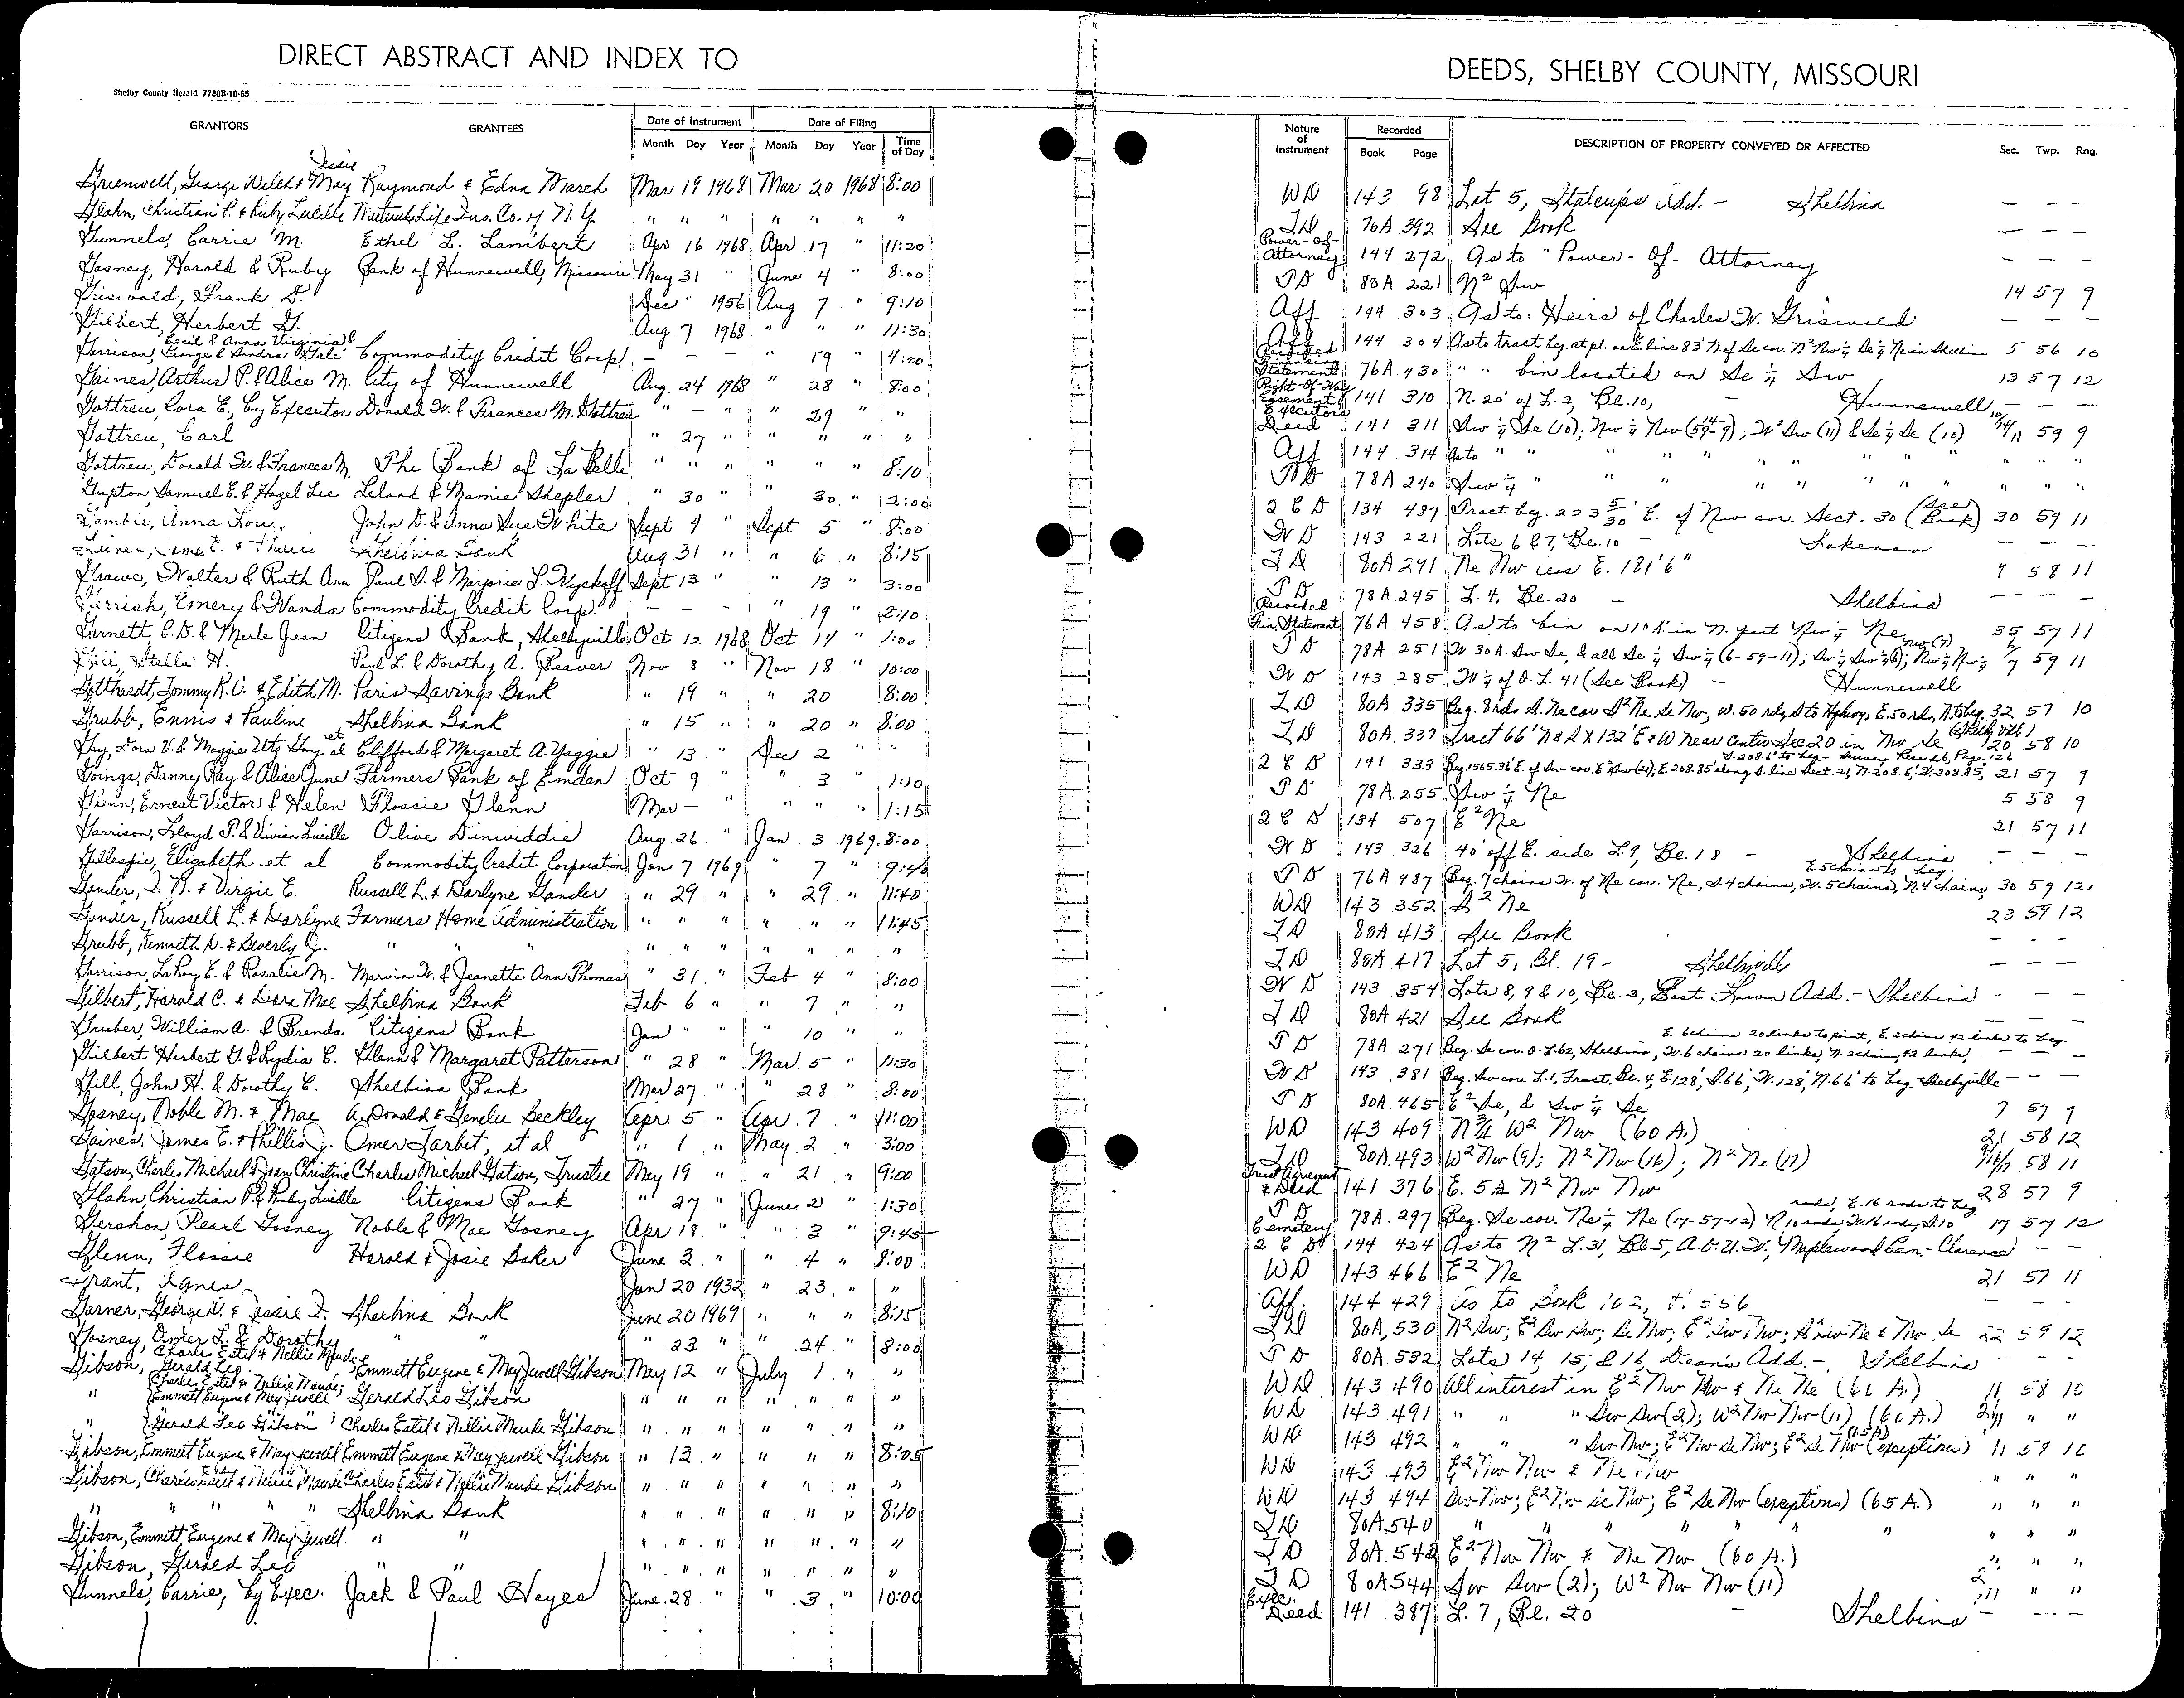 DIRECT ABSTRACT AND INDEX TO
Shelby County Herald 7780B-10-65
GRANTORS GRANTEES Date of Instrument Date of Filing
Month Day Year Month Day Year Time of Day
Jessie
Greenwell, George Welch & May Raymond & Edna March Mar 19 1968 Mar 20 1968 8:00
Glahn, Christian P. & Ruby Lucille Mutual Life Ins. Co. of N.Y. " " " " " " "
Gunnels, Carrie M. Ethel L. Lambert Apr 16 1968 Apr 17 " 11:20
Gosney, Harold & Ruby Bank of Hunnewell, Missouri May 31 " June 4 " 8:00
Griswold, Frank D. Dec " 1956 Aug 7 " 9:10
Gilbert, Herbert G. Aug 7 1968 " " " 11:30
Cecil & Anna Virginia &
Garrison, George & Sandra Gale Commodity Credit Corp. — — — " 19 " 4:00
Gaines, Arthur P. & Alice M. City of Hunnewell Aug. 24 1968 " 28 " 8:00
Gottreu, Cora E., by Executor Donald W. & Frances M. Gottreu " — " " 29 " "
Gottreu, Carl " 27 " " " " "
Gottreu, Donald W. & Frances M. The Bank of La Belle " " " " " " 8:10
Gupton, Samuel E. & Hazel Lee Leland & Mamie Shepler " 30 " 30 " 2:00
Anna Lou John D. & Anna Sue White Sept 4 " Sept 5 " 8:00
James E. & Shelbina Bank Aug 31 " " 6 " 8:15
Grawe, Walter & Ruth Ann Paul S. & Marjorie L. Wyckoff Sept 13 " " 13 " 3:00
Gerrish, Emery & Wanda Commodity Credit Corp. — — — " 19 " 2:10
Garnett, C.D. & Merle Jean Citizens Bank, Shelbyville Oct 12 1968 Oct 14 " 1:00
Gill, Stella H. Paul L. & Dorothy A. Beaver Nov 8 " Nov 18 " 10:00
Gotthardt, Tommy R.O. & Edith M. Paris Savings Bank " 19 " " 20 8:00
Grubb, Ennis & Pauline Shelbina Bank " 15 " " 20 " 8:00
Gay, Dora V. & Maggie Utz Gay et al Clifford & Margaret A. Yaggie " 13 " Dec 2 " "
Goings, Danny Ray & Alice June Farmers Bank of Emden Oct 9 " " 3 " 1:10
Glenn, Ernest Victor & Helen Flossie Glenn Mar — " " " " 1:15
Garrison, Lloyd P. & Vivian Lucille Olive Dinwiddie Aug. 26 " Jan 3 1969 8:00
Gillespie, Elizabeth et al Commodity Credit Corporation Jan 7 1969 " 7 " 9:40
Gander, I. N. & Virgie E. Russell L. & Darlyne Gander " 29 " " 29 " 11:40
Gander, Russell L. & Darlyne Farmers Home Administration " " " " " " 11:45
Grubb, Kenneth D. & Beverly J. " " " " " " " " " "
Garrison, LaRoy E. & Rosalie M. Marvin W. & Jeanette Ann Thomas " 31 " Feb 4 " 8:00
Gilbert, Harold C. & Dora Mae Shelbina Bank Feb 6 " " 7 " "
Gruber, William A. & Brenda Citizens Bank Jan " " " 10 " "
Gilbert Herbert G. & Lydia C. Glenn & Margaret Patterson " 28 " Mar 5 " 11:30
Gill, John H. & Dorothy C. Shelbina Bank Mar 27 " " 28 " 8:00
Gosney, Noble M. & Mae A. Donald & Genelu Beckley Apr 5 " Apr 7 " 11:00
Gaines, James E. & Phillis J. Omer Tarbet, et al " 1 " May 2 " 3:00
Gatson, Charles Michael & Joan Christine Charles Michael Gatson, Trustee May 19 " " 21 " 9:00
Glahn, Christian P. & Ruby Lucille Citizens Bank " 27 " June 2 " 1:30
Gershon, Pearl Gosney Noble & Mae Gosney Apr 18 " " 3 " 9:45
Glenn, Flossie Harold & Josie Baker June 3 " " 4 " 8:00
Grant, Agnes Jan 20 1932 " 23 " "
Garner, George W. & Jessie I. Shelbina Bank June 20 1969 " " " 8:15
Gosney, Omer L. & Dorothy " " " 23 " " 24 " 8:00
Charles Estel & Nellie Maude &
Gibson, Gerald Leo Emmett Eugene & May Jewell Gibson May 12 " July 1 " "
Charles Estel & Nellie Maude;
" Emmett Eugene & May Jewell Gerald Leo Gibson " " " " " " "
" Gerald Leo Gibson Charles Estel & Nellie Maude Gibson " " " " " " "
Gibson, Emmett Eugene & May Jewell Emmett Eugene & May Jewell Gibson " 13 " " " " 8:05
Gibson, Charles Estel & Nellie Maude Charles Estel & Nellie Maude Gibson " " " " " " "
" " " " " Shelbina Bank " " " " " " 8:10
Gibson, Emmett Eugene & May Jewell " " " " " " " " "
Gibson, Gerald Leo " " " " " " " " "
Gunnels, Carrie, by Exec. Jack & Paul Hayes June 28 " " 3 " 10:00
DEEDS, SHELBY COUNTY, MISSOURI
Nature of Instrument Recorded Book Page DESCRIPTION OF PROPERTY CONVEYED OR AFFECTED Sec. Twp. Rng.
WD 143 98 Lot 5, Stalcup's Add. — Shelbina — — —
TD 76A 392 See Book — — —
Power-Of-Attorney 144 272 As to "Power-Of-Attorney — — —
TD 80A 221 N² Sw 14 57 9
Aff 144 303 As to: Heirs of Charles W. Griswold — — —
Aff 144 304 As to tract beg. at pt. on E. line 83' N. of Se cor. N² Nw ¼ Se ¼ Ne in Shelbina 5 56 10
Recorded Financing Statement 76A 430 " " bin located on Se ¼ Sw 13 57 12
Right-Of-Way Easement 141 310 N. 20' of L. 2, Bl. 10, Hunnewell — — —
Executors Deed 141 311 Sw ¼ Se (10); Nw ¼ Nw (14-59-9); W² Sw (11) & Se ¼ Se (10) 10/14/11 59 9
Aff 144 314 As to " " " " " " " " " " "
TD 78A 240 Sw ¼ " " " " " " " " " "
2 C D 134 487 Tract beg. 223 5/30' E. of Nw cor. Sect. 30 (See Book) 30 59 11
WD 143 221 Lots 6 & 7, Bl. 10 — Lakenan — — —
TD 80A 291 Ne Nw less E. 181'6" 9 58 11
TD 78A 245 L. 4, Bl. 20 — Shelbina — — —
Recorded Fin. Statement 76A 458 As to bin on 10 A. in N. part Nw ¼ Ne 35 57 11
TD 78A 251 W. 30 A. Sw Se, & all Se ¼ Sw ¼ (6-59-11); Sw ¼ Sw ¼ (6); Nw ¼ Nw ¼ Nw (7) 6/7 59 11
WD 143 285 W ¼ of O. L. 41 (See Book) — Hunnewell
TD 80A 335 Beg. 8 rds S. Ne cor S² Ne Se Nw, W. 50 rds, S to Hghwy, E. 50 rds, N. to beg. 32 57 10
TD 80A 337 Tract 66' N & S X 132' E & W near Center Sec 20 in Nw Se (Shelbyville) 20 58 10
S. 208.6' to beg. — Survey Record 6, Page 126
2 C D 141 333 Beg. 1565.36' E. of Sw cor. E² Sw (21), E. 208.85' along S. line Sect. 21, N. 208.6', W. 208.85, 21 57 9
TD 78A 255 Sw ¼ Ne 5 58 9
2 C D 134 507 E² Ne 21 57 11
WD 143 326 40' off E. side L. 9, Bl. 18 — Shelbina — — —
E. 5 chains to beg.
TD 76A 487 Beg. 7 chains W. of Ne cor. Ne, S. 4 chains, W. 5 chains, N. 4 chains, 30 59 12
WD 143 352 S² Ne 23 59 12
TD 80A 413 See Book — — —
TD 80A 417 Lot 5, Bl. 19 — Shelbyville — — —
WD 143 354 Lots 8, 9 & 10, Bl. 2, East Lawn Add. — Shelbina — — —
TD 80A 421 See Book — — —
E. 6 chains 20 links to point, E. 2 chains 42 links to beg.
TD 78A 271 Beg. Se cor. O. L. 62, Shelbina, W. 6 chains 20 links, N. 2 chains, 42 links, — —
WD 143 381 Beg. Sw cor. L. 1, Tract, Bl. 4, E 128', S. 66', W. 128', N. 66' to beg. Shelbyville — — —
TD 80A 465 E² Se, & Sw ¼ Se 7 57 9
WD 143 409 N ¾ W² Nw (60 A.) 21 58 12
TD 80A 493 W² Nw (9); N² Nw (16); N² Ne (17) 9/16/17 58 11
Trust Agreement & Deed 141 376 E. 5 A N² Nw Nw 28 57 9
rods, E. 16 rods to beg
TD 78A 297 Beg. Se cor. Ne ¼ Ne (17-57-12) N 10 rods, W. 16 rods, S 10 17 57 12
Cemetery 2 C D 144 424 As to N² L. 31, Bl. 5, A.O.U.W., Maplewood Cem. — Clarence — —
WD 143 466 E² Ne 21 57 11
Aff. 144 429 As to Book 102, P. 556 — — —
TD 80A, 530 N² Sw; E² Sw Sw; Se Nw; E² Sw Nw; S² Nw Ne & Nw Se 22 59 12
TD 80A 532 Lots 14, 15, & 16, Dean's Add. — Shelbina — — —
WD 143 490 All interest in E² Nw Nw & Ne Ne (60 A.) 11 58 10
WD 143 491 " " " Sw Sw (2); W² Nw Nw (11) (60 A.) 2/11 " "
WD 143 492 " " " Sw Nw; E² Nw Se Nw; E² Se Nw (65 A) (exception) 11 58 10
WD 143 493 E² Nw Nw & Ne Nw " " "
WD 143 494 Sw Nw; E² Nw Se Nw; E² Se Nw (exceptions) (65 A.) " " "
TD 80A 540 " " " " " " " " "
TD 80A. 542 E² Nw Nw & Ne Nw (60 A.) " " "
TD 80A 544 Sw Sw (2); W² Nw Nw (11) 2/11 " "
Exec. Deed 141 387 L. 7, Bl. 20 — Shelbina — — —